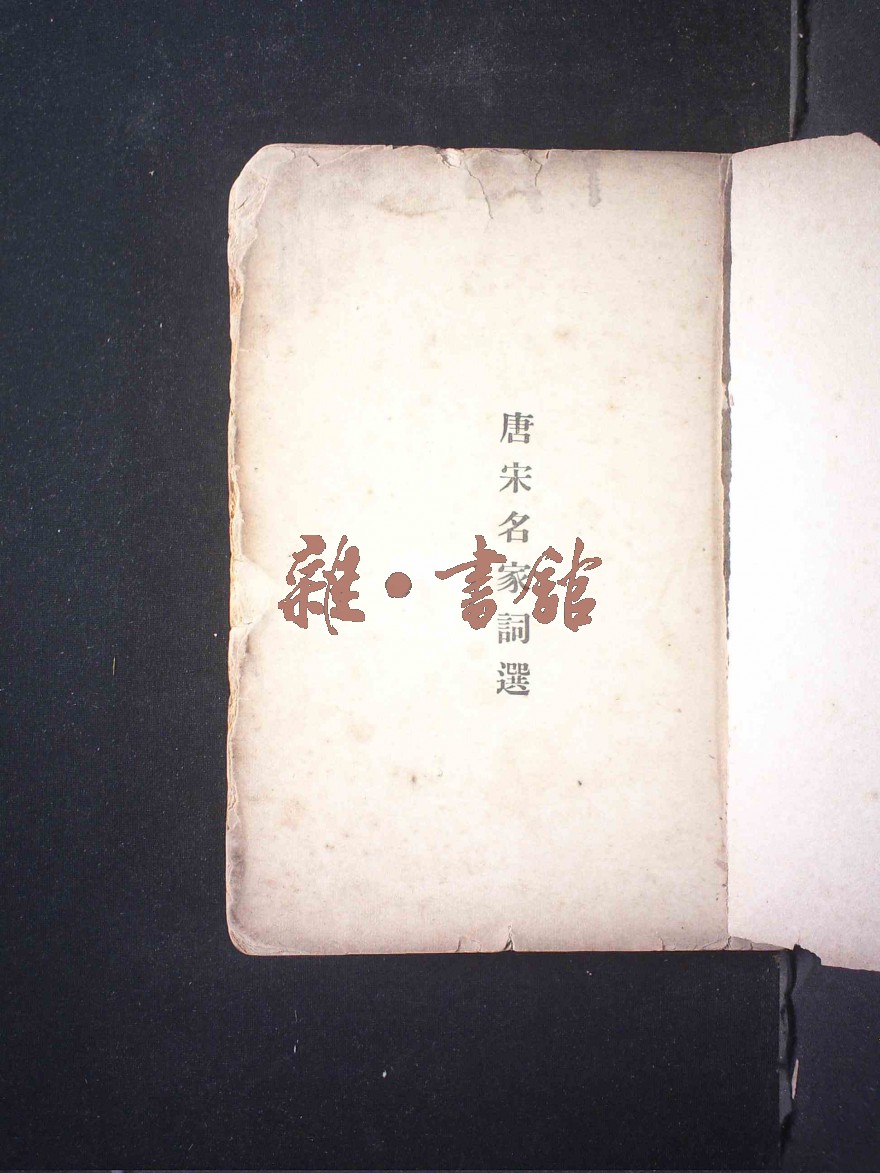 唐宋名家詞選
雜·書館